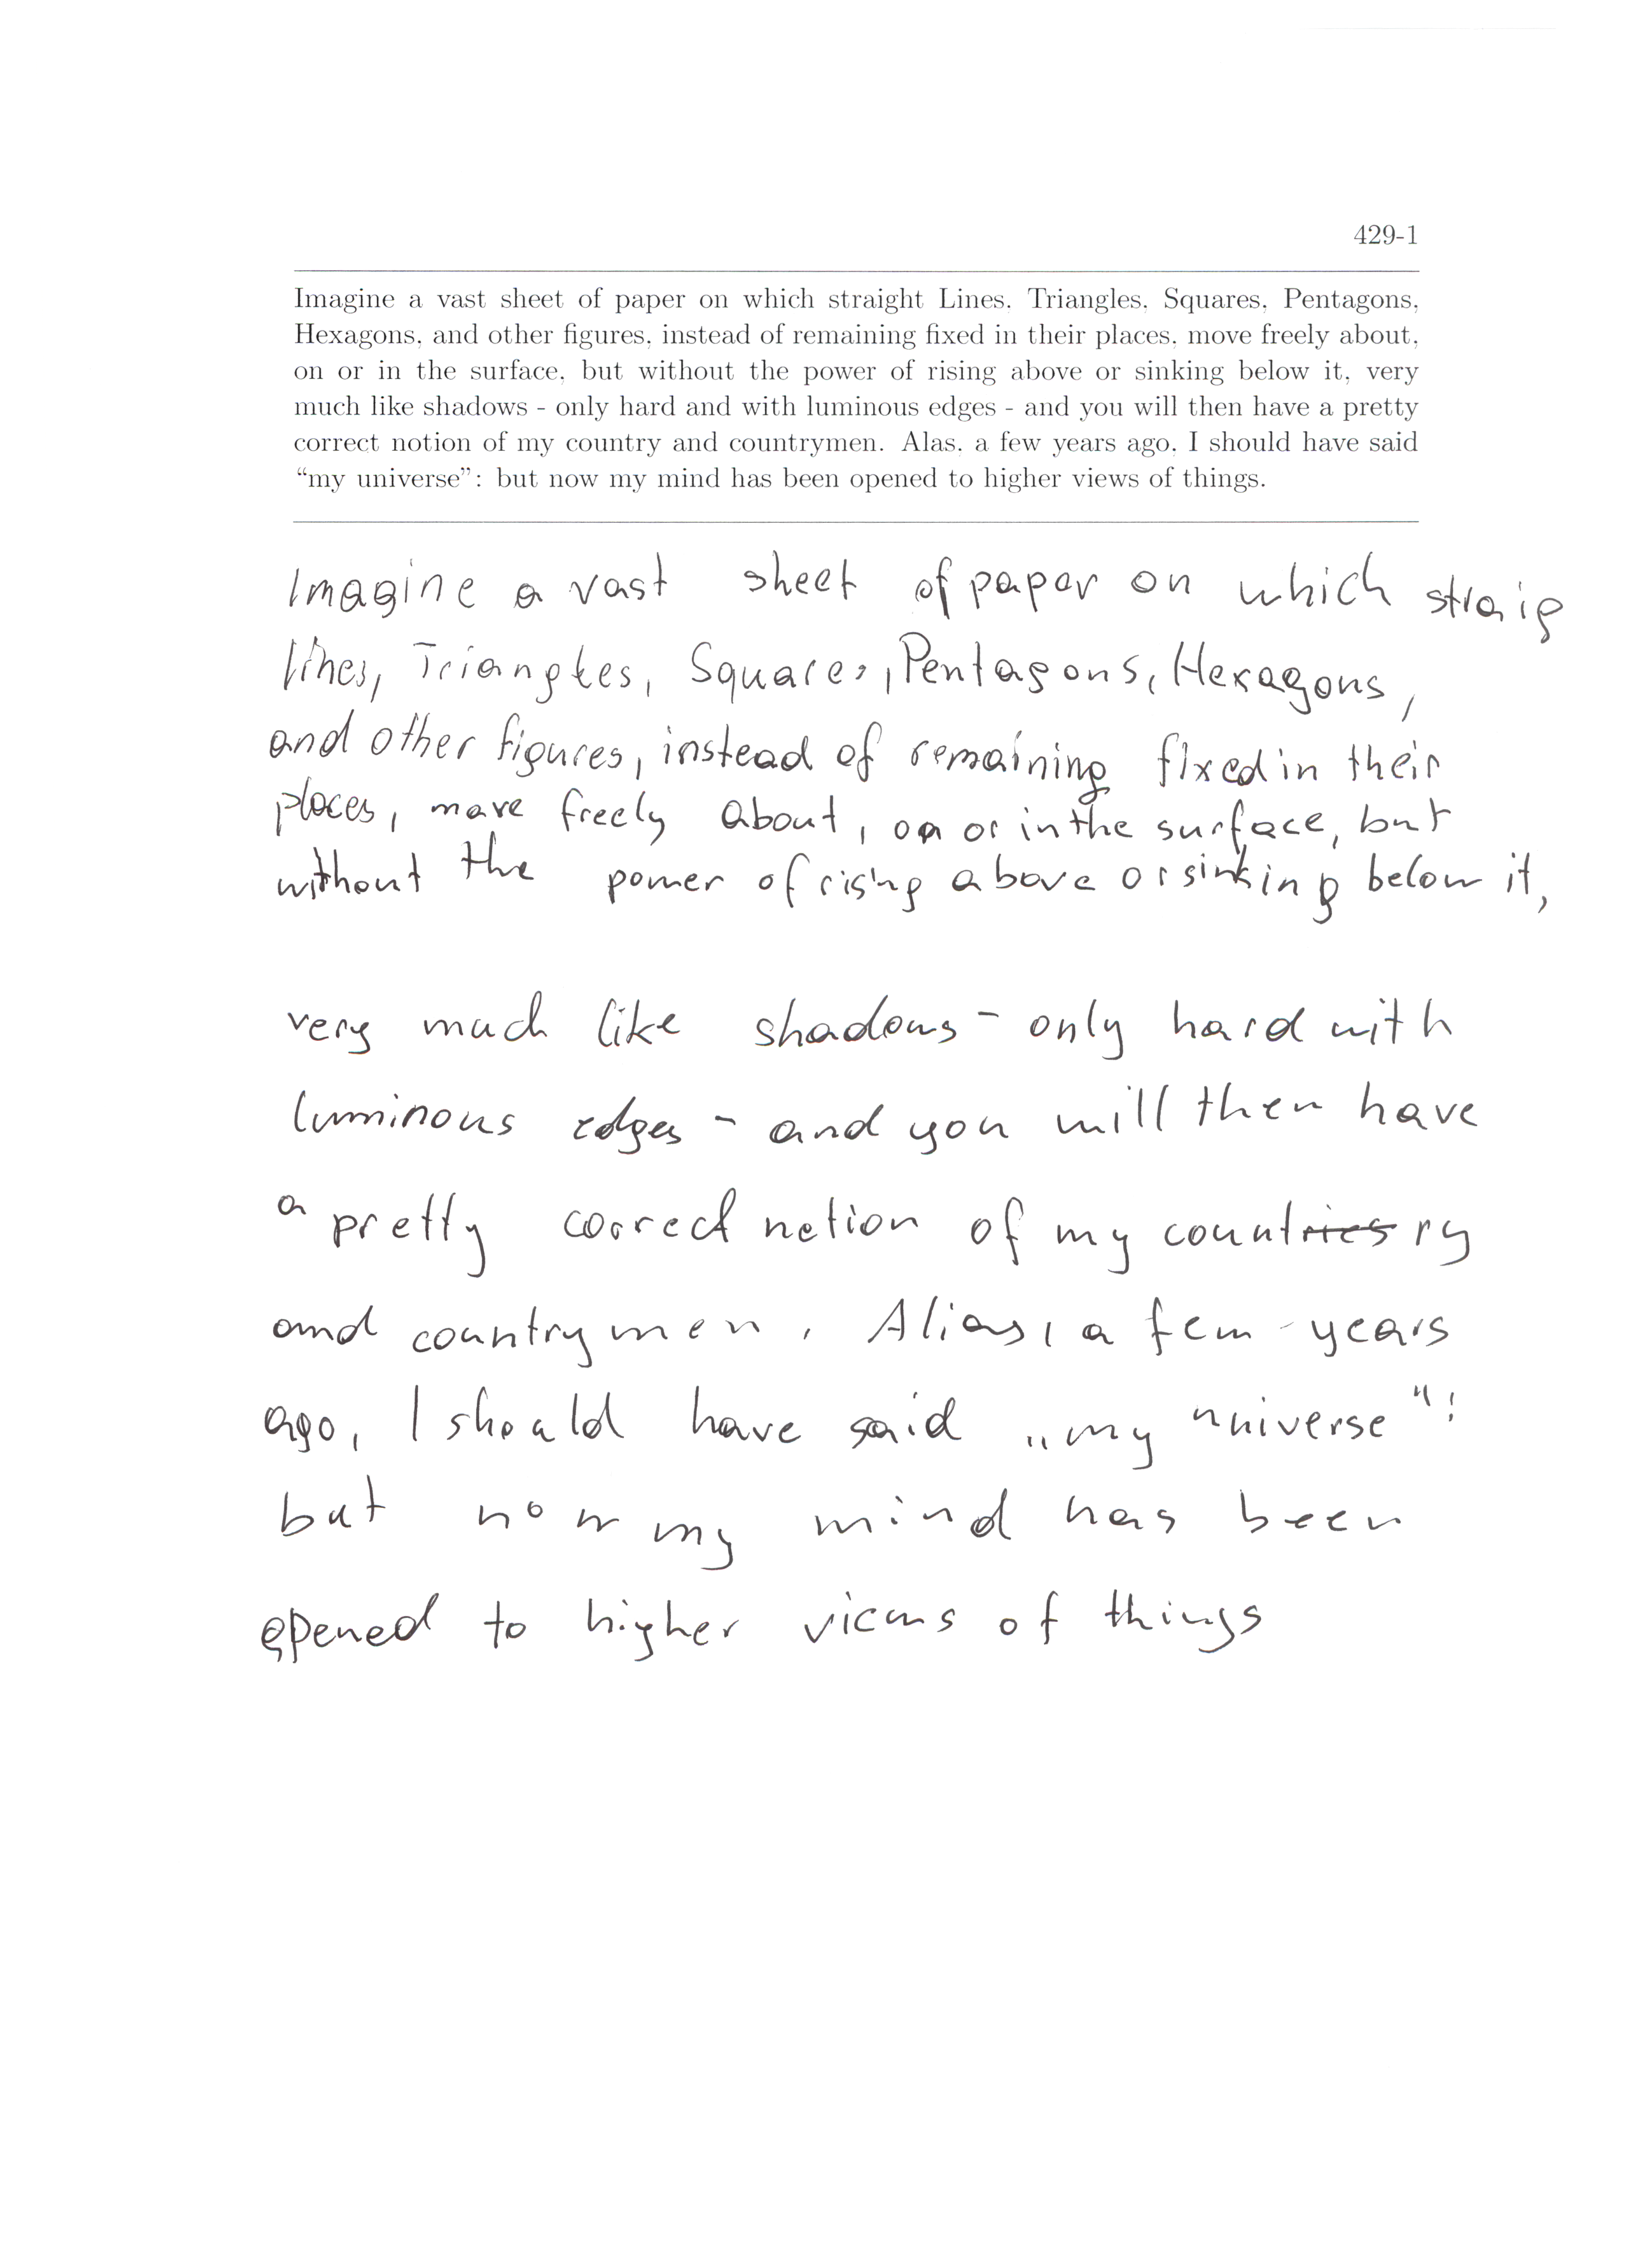 429-1
Imagine a vast sheet of paper on which straight Lines, Triangles, Squares, Pentagons,
Hexagons, and other figures, instead of remaining fixed in their places, move freely about,
on or in the surface, but without the power of rising above or sinking below it, very
much like shadows - only hard and with luminous edges - and you will then have a pretty
correct notion of my country and countrymen. Alas, a few years ago, I should have said
“my universe”: but now my mind has been opened to higher views of things.
Imagine a vast sheet of paper on which straig
lines, Triangles, Squares, Pentagons, Hexagons,
and other figures, instead of remaining fixed in their
places, move freely about, on or in the surface, but
without the power of rising above or sinking below it,
very much like shadows - only hard with
luminous edges - and you will then have
a pretty correct notion of my countries ry
and countrymen. Alias, a few years
ago, I should have said „my universe“:
but now my mind has been
opened to higher views of things